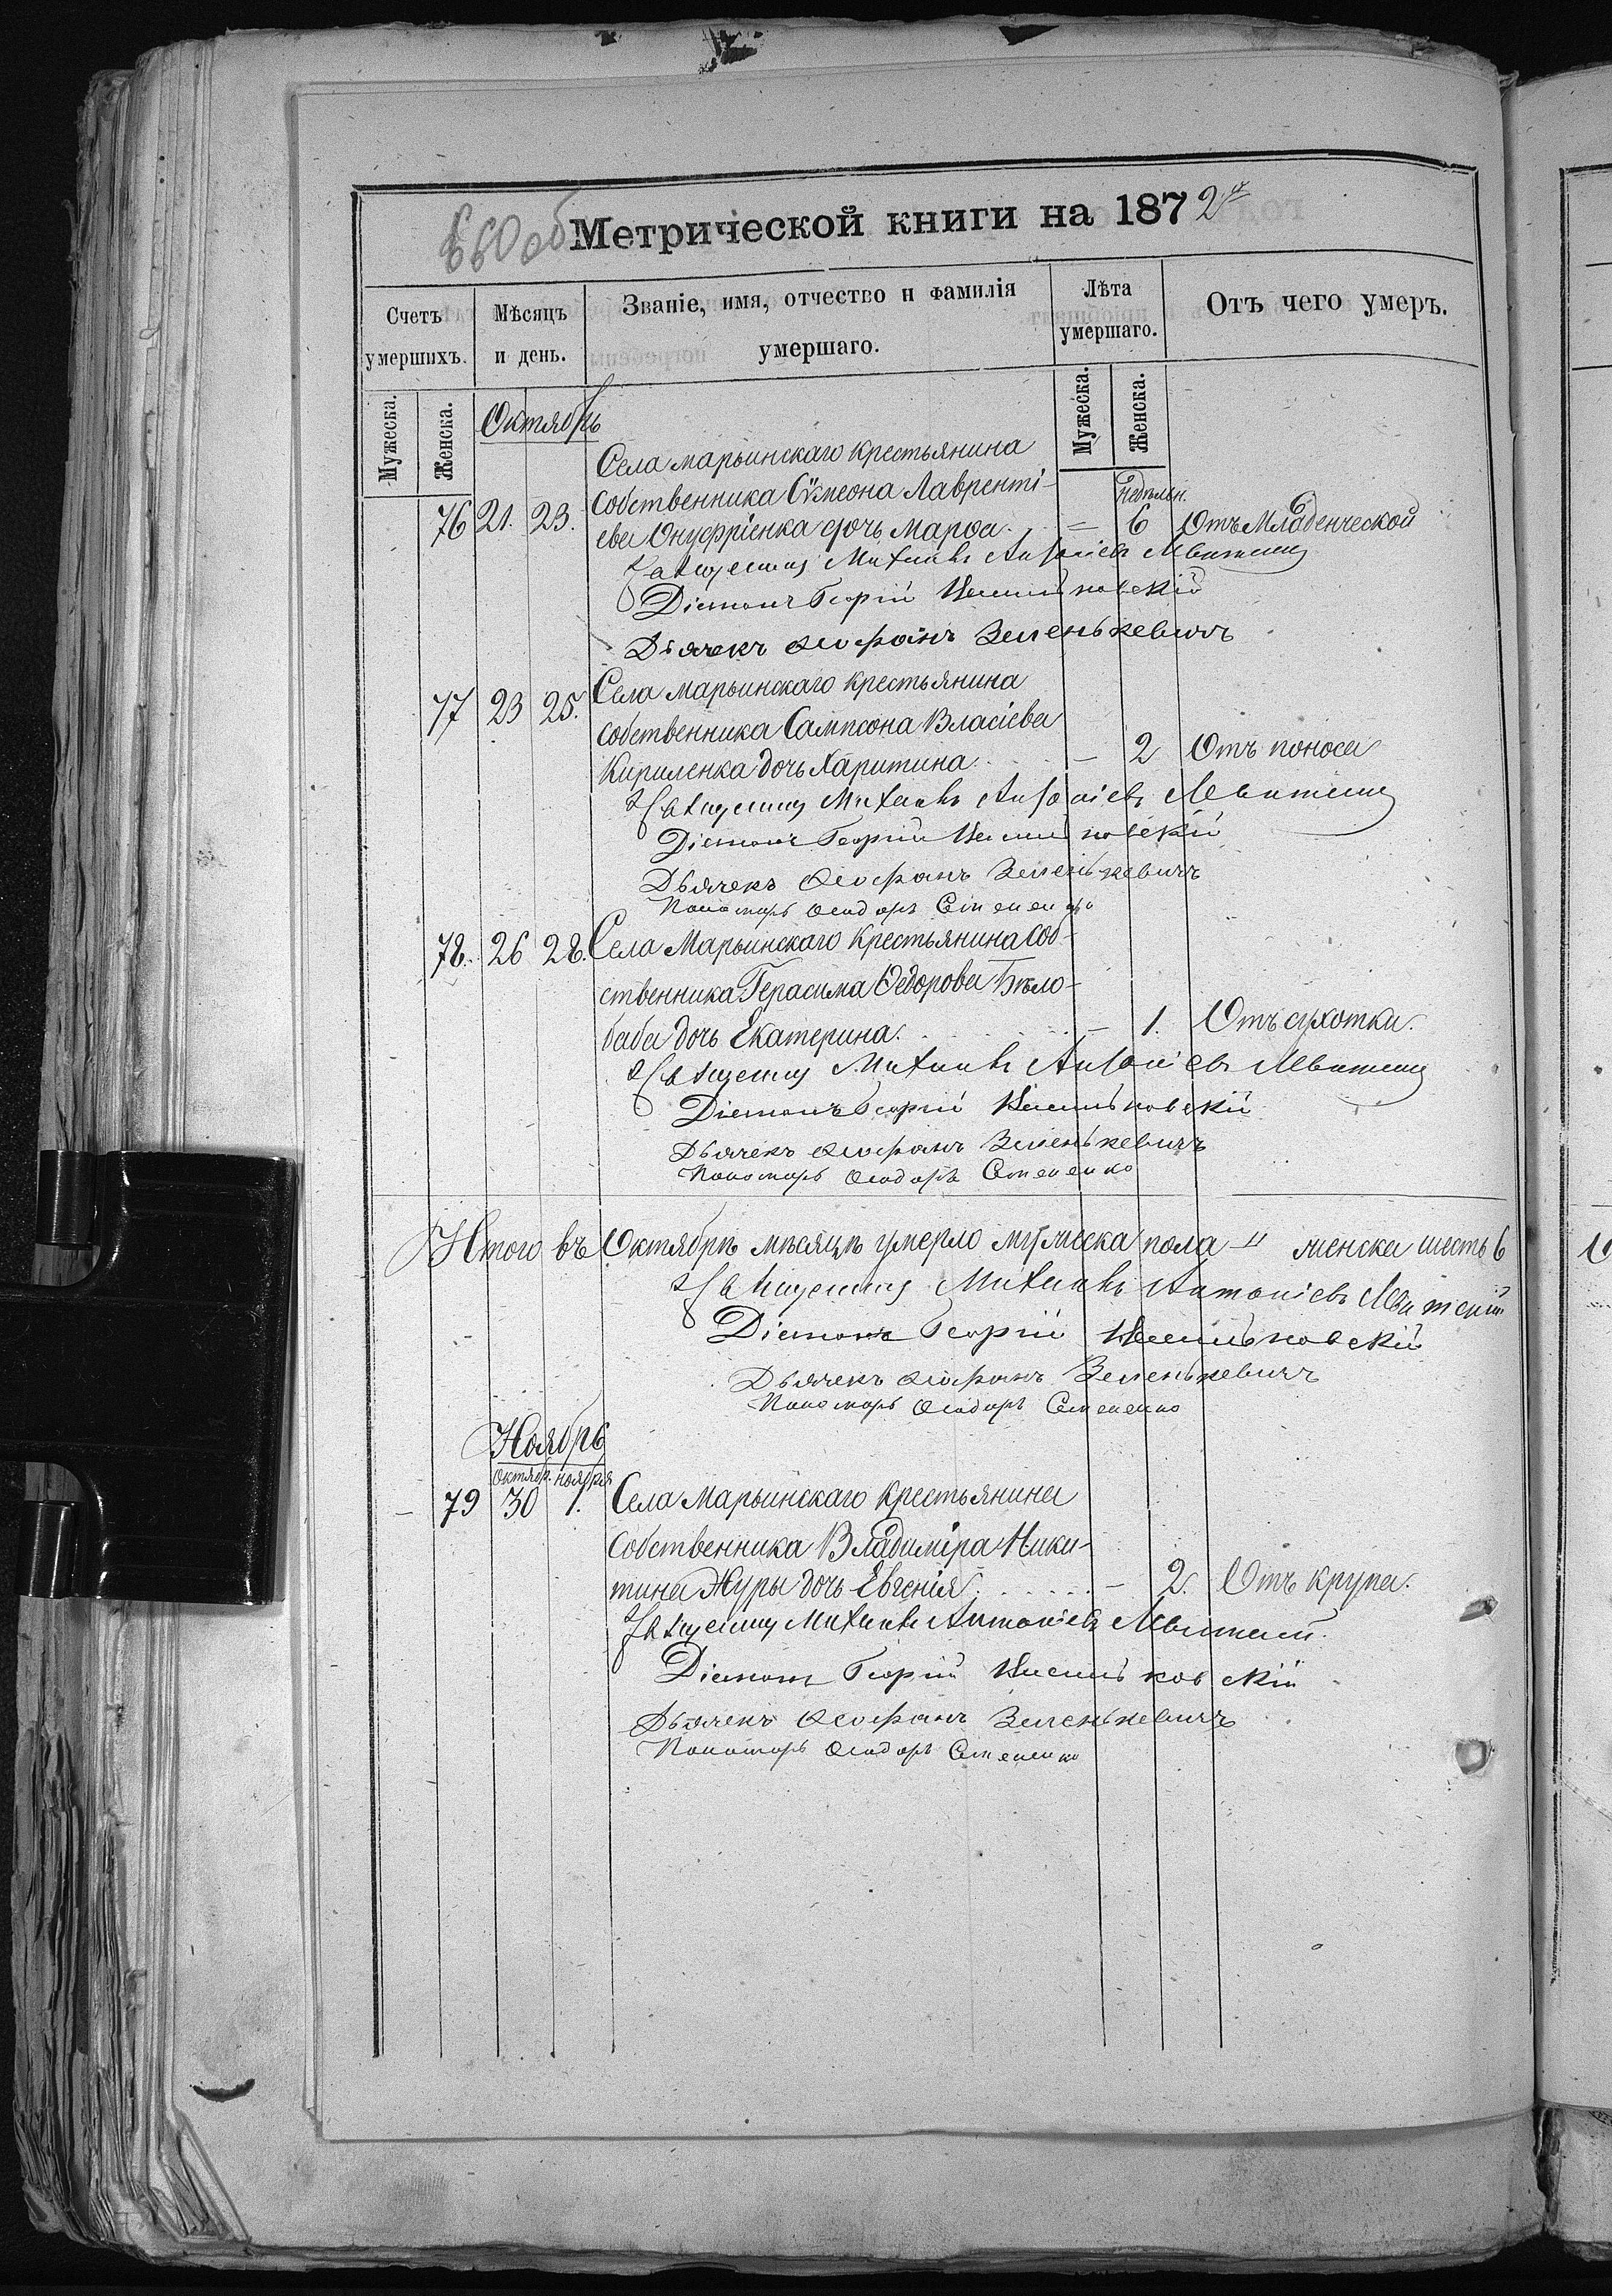 660 об
Метрической книги на 1872й
Счетъ умершихъ.
Мѣсяцъ и день.
Званіе, имя, отчество и фамилія умершаго.
Лѣта умершаго.
Отъ чего умеръ.
Мужеска.
Женска.
Мужеска.
Женска.
Октябрь
Села марьинскаго крестьянина
76 21. 23. собственника Сѷмеона Лавренті- недѣльн.
ева Онуфріенка дочь Марѳа. = 6 Отъ Младенческой
Священникъ Михаилъ Антоніевъ
Діаконъ Георгій
Дьячекъ Ѳеофанъ Зеленькевичъ
77 23 25. Села марьинскаго крестьянина
собственника Сампсона Власіева
Кириленка дочь Харитина. . . – 2 Отъ поноса
Священникъ Михаилъ Антоніевъ
Діаконъ Георгій
Дьячекъ Ѳеофанъ Зеленькевичъ
Пономарь Ѳеодоръ
78. 26 28. Села Марьинскаго Крестьянина Соб-
ственника Герасима Ѳедорова Бѣло-
баба дочь Екатерина. – 1. Отъ сухотки.
Священникъ Михаилъ Антоніевъ
Діаконъ Георгій
Дьячекъ Ѳеофанъ Зеленькевичъ
Пономарь Ѳеодоръ
Итого въ Октябрѣ мѣсяцѣ умерло мужеска пола " женска шесть 6
Священникъ Михаилъ Антоніевъ
Діаконъ Георгій
Дьячекъ Ѳеофанъ Зеленькевичъ
Пономарь Ѳеодоръ
Ноябрь
октябр. ноября
– 79 30 1. Села Марьинскаго Крестьянина
Собственника Владиміра Ники-
тина Журы дочь Евгенія. . . . . . – 2. Отъ крупа.
Священникъ Михаилъ Антоніевъ
Діаконъ Георгій
Дьячекъ Ѳеофанъ Зеленькевичъ
Пономарь Ѳеодоръ